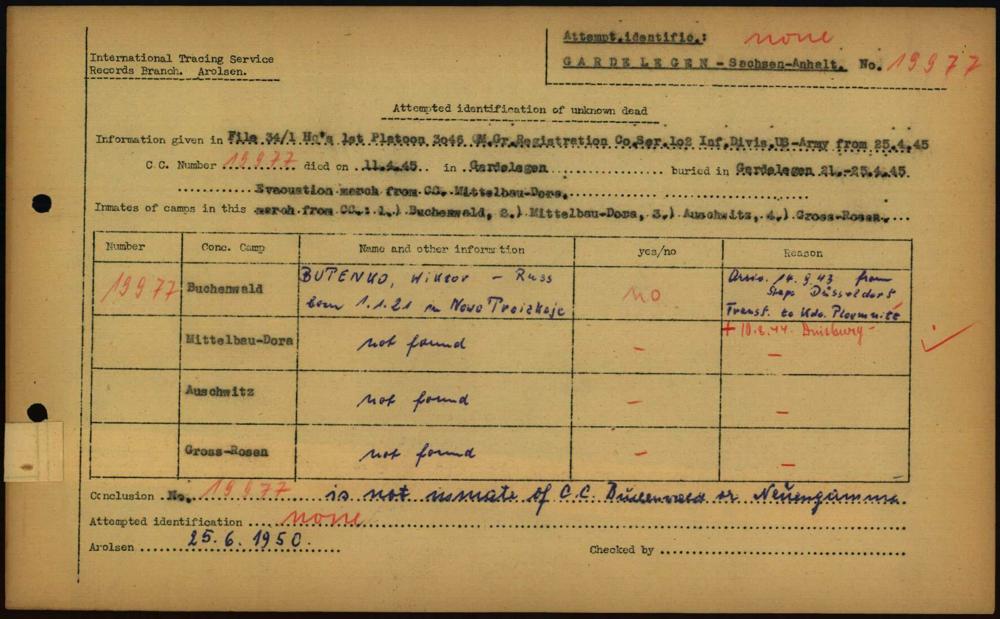 International Tracing Service
Records Branch. Arolsen.
Attempt.identific.: none
GARDELEGEN - Sachsen-Anhalt. No. 19977
Attempted identification of unknown dead
Information given in File 34/1 Hq's 1st Platoon 3046 QM.Gr.Registration Co.Ser.102 Inf.Divis.US-Army from 25.4.45
C.C. Number 19977 died on 11.4.45 in Gardelegen buried in Gardelegen 21.-25.4.45
Evacuation march from CC. Mittelbau-Dora.
Inmates of camps in this march from CC.: 1.) Buchenwald, 2.) Mittelbau-Dora, 3.) Auschwitz, 4.) Gross-Rosen.
Number Conc. Camp Name and other information yes/no Reason
19977 Buchenwald BUTENKO, Wiktor - Russ no Arriv. 14.9.43 from
born 1.1.21 in Nowo Troizkoje Stapo Düsseldorf
Transf. to Kdo. Ploemnitz
+ 10.8.44. Duisburg -
Mittelbau-Dora not found - -
Auschwitz not found - -
Gross-Rosen not found - -
Conclusion No. 19977 is not inmate of C.C. Buchenwald or Neuengamme
Attempted identification none
Arolsen 25.6.1950.
Checked by